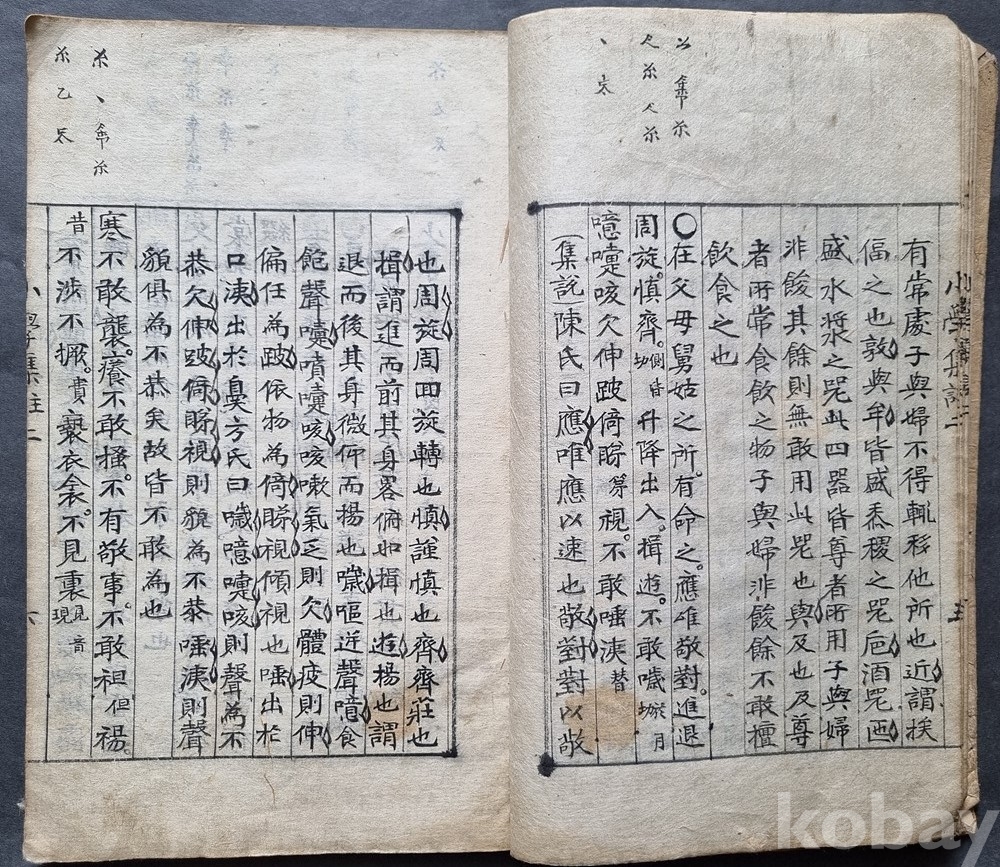 有常處子與婦不得輒移他所也近謂挨
偪之也敦與牟皆盛黍稷之噐巵酒噐匜
盛水漿之噐此四器皆尊者所用子與婦
非餕其餘則無敢用此噐也與及也及尊
者所常食飲之物子與婦非餕餘不敢擅
飲食之也
○在父母舅姑之所有命之應唯敬對進退
周旋慎齊側皆切升降出入揖遊不敢噦於月切
噫嚏咳欠伸跛倚睇視不敢唾洟替
集説陳氏曰應唯應以速也敬對對以敬
也周旋周回旋轉也慎謹慎也齊齊莊也
揖謂進而前其身畧俯如揖也遊楊也謂
退而後其身微仰而揚也噦嘔逆聲噫食
飽聲嚏噴嚏咳咳嗽氣乏則欠體疲則伸
偏任為跛依物為倚睇視傾視也唾出於
口洟出於鼻方氏曰噦噫嚏咳則聲為不
恭欠伸跛倚睇視則貌為不恭唾洟則聲
貌俱為不恭矣故皆不敢為也
寒不敢襲癢不敢搔不有敬事不敢袒但裼
昔不涉不撅貴褻衣衾不見裏見音現
小學集註二
六
kobay